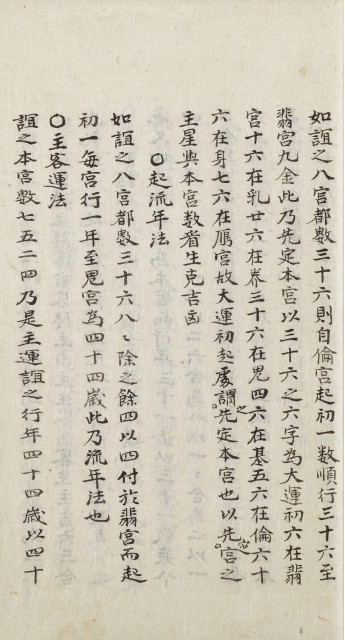 如誼之八宮都數三十六則自倫宮起初一數順行三十六至
翡宮九金此乃先定本宮以三十六之六字為大運初六在翡
宮十六在乳廿六在养三十六在䍐四六在基五六在倫六十
六在身七六在鴈宮故大運初起處謂之先定本宮也以先定宮之
主星與本宮数看生克吉凶
〇起流年法
如誼之八宮都數三十六八〻除之餘四以四付於翡宮而起
初一每宮行一年至䍐宮為四十四歲此乃流年法也
〇主客運法
誼之本宮數七五二四乃是主運誼之行年四十四歲以四十